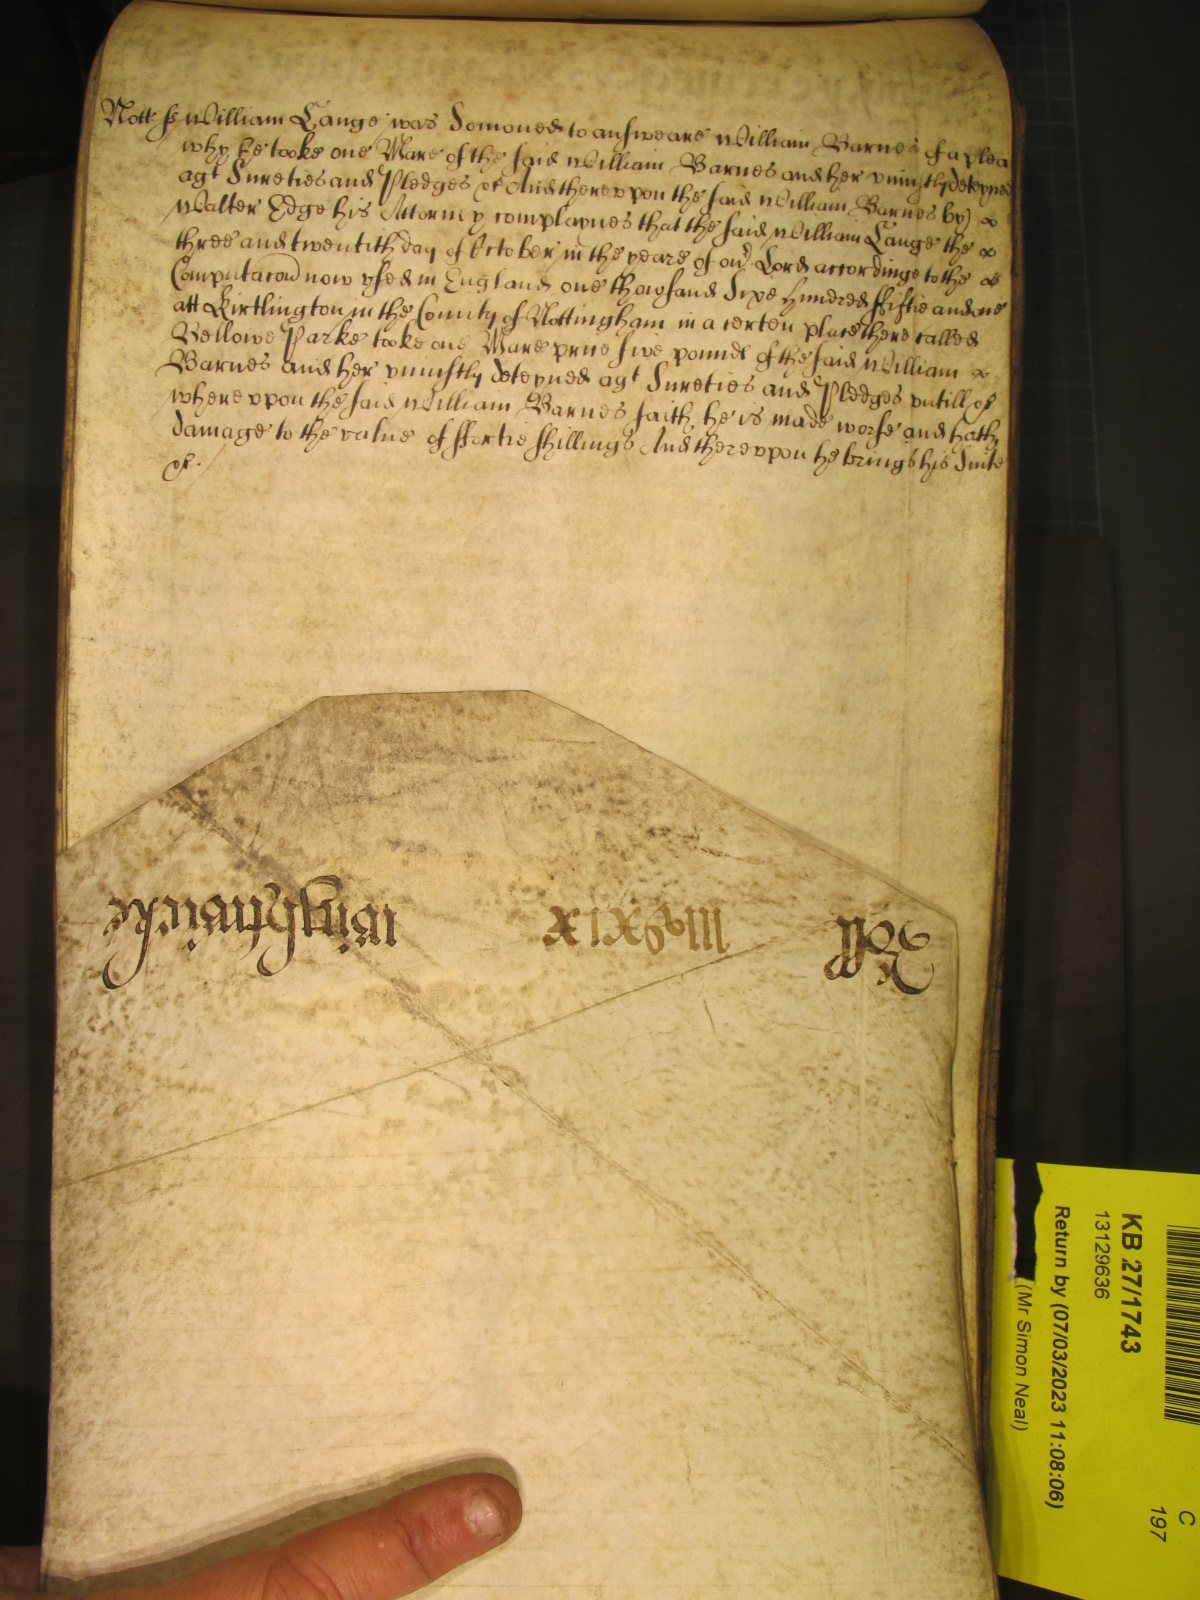 Nott ss William Lange was Somoned to answeare William Barnes of a plea
why he tooke one Mare of the said William Barnes and her uniustly deteyned
agt Sureties and Pledges &c And thereupon the said William Barnes by
Walter Edge his Attorney complaynes that the said William Lange the
three and twentith day of October in the yeare of our Lord accordinge to the
Computacon now used in England one thowsand Sixe hundred ffiftie and one
att Kirtlington in the County of Nottingham in a certen place there called
Bellowe Parke tooke one Mare price five pounds of the said William
Barnes and her uniustly deteyned agt Sureties and Pledges untill &c
whereupon the said William Barnes saith he is made worse and hath
damage to the value of ffortie shillings And thereupon he brings his Suite
&c.
Roll
Wightwicke
KB 27/1743
13129636
Return by (07/03/2023 11:08:06)
(Mr Simon Neal)
C
197